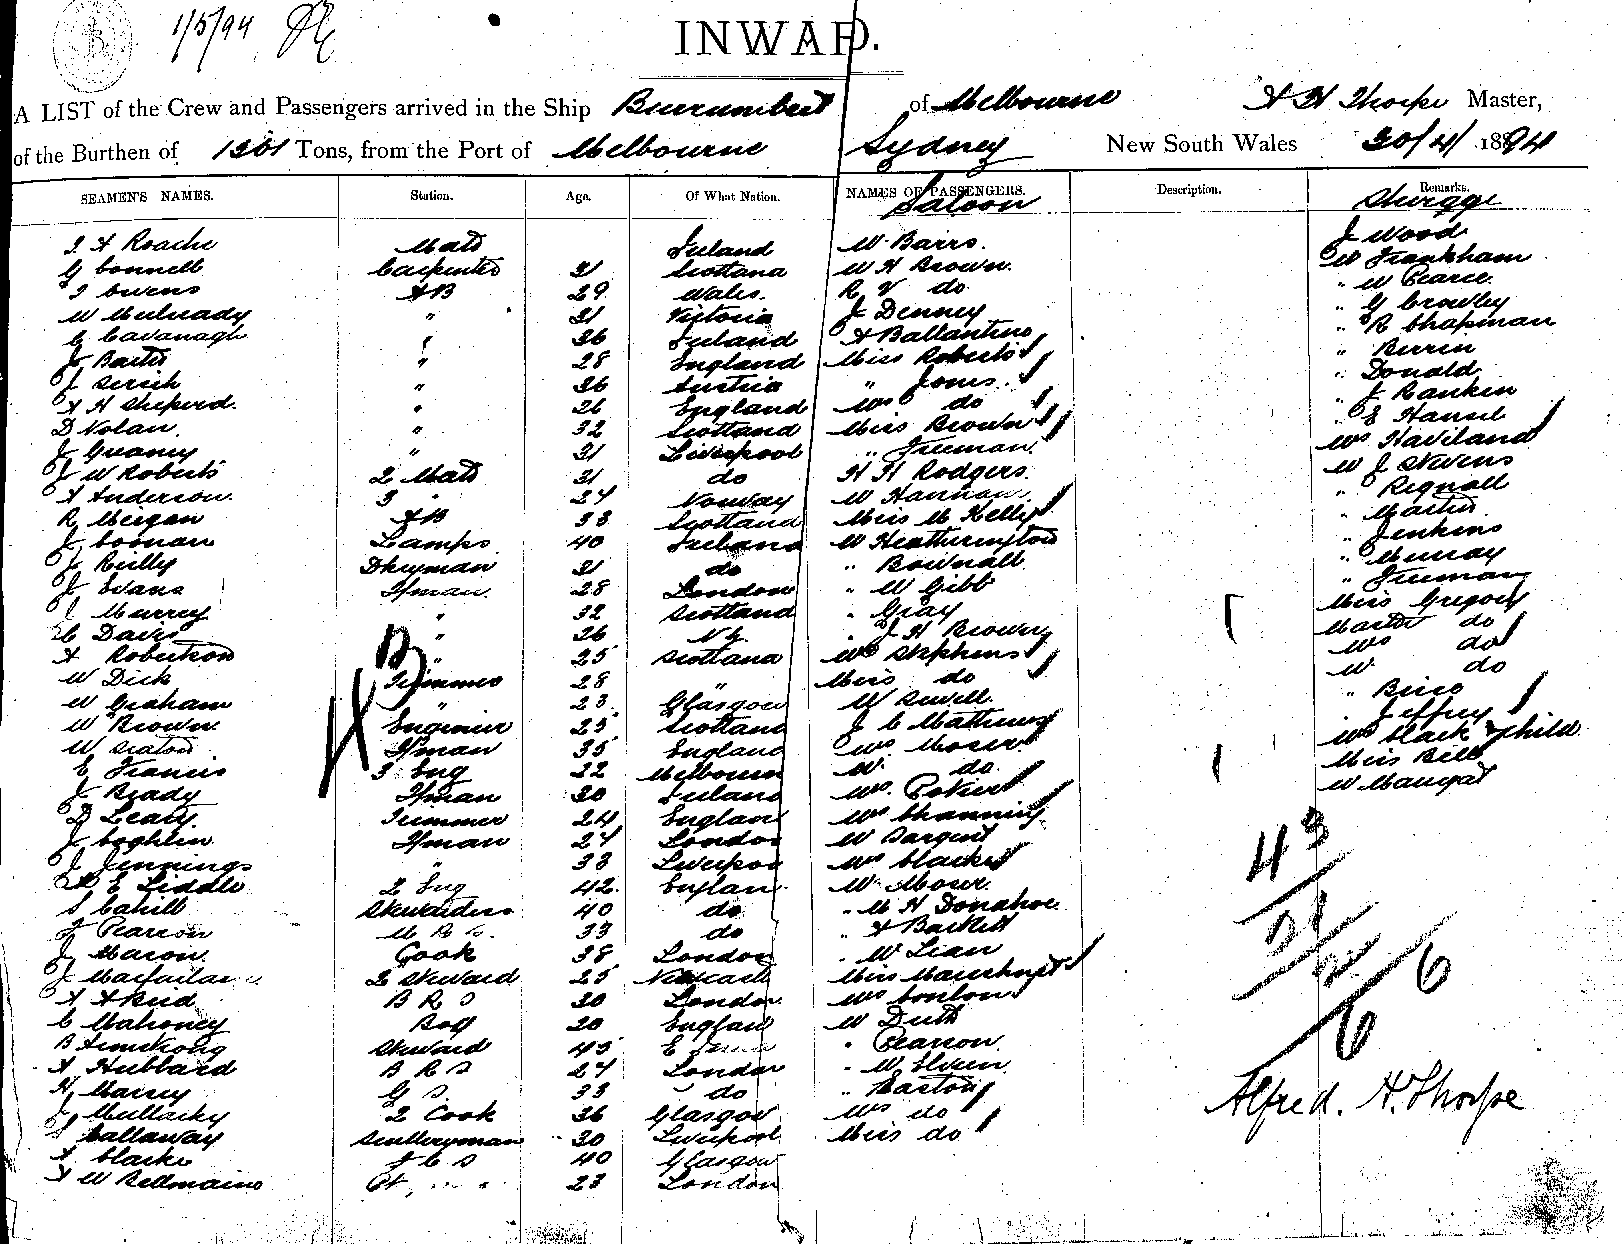 1/5/94
INWARD.
A LIST of the Crew and Passengers arrived in the Ship Burrumbeet of Melbourne A H Thorpe Master,
of the Burthen of Tons, from the Port of Melbourne Sydney New South Wales 30/4/ 1894
SEAMEN'S NAMES. Station. Age. Of What Nation. NAMES OF PASSENGERS. Description. Remarks.
Saloon Steerage
Roache Mate Ireland W Barrs. J Wood
G Connell Carpenter 31 Scotland W H Brown. W Frankham
Owens AB 29 Wales. R V do " W Pearce
W Mulready " 31 Victoria J Denney " G Crowley
C Cavanagh " 36 Ireland A Ballantine " R Chapman
J " 28 England Miss Roberts " Birrin
J " 36 Austria " Jones. " Donald
A H Sheperd. " 26 England Mrs do " J Rankin
D Nolan. " 32 Scotland Miss Brown " E Hansel
J " 31 Liverpool " Freeman. Mrs Haviland
J W Roberts 2 Mate 31 do H H Rodgers. W J Stevens
A Anderson. 3 " 24 Norway W Hannan. " Rignall
R Meigan AB 38 Scotland Miss M Kelly " Martin
J Coonan Lamps 40 Ireland W Heatherington " Jenkins
J Reilly Dkeyman 31 do " Bownall " Murray
J Evans Fman. 28 London " W Gibb " Freeman
J Murrey " 32 Scotland " Gray Miss Gregory
C Davis " 26 N Z. " J H Brown Master do
A Robertson " 25 Scotland Mrs Stephens Mrs do
W Dick Trimmer 28 " Miss do W do
W Graham " 23 Glasgow W Sewell " Brice
W Brown Engineer 25 Scotland J C Mathews " Jeffrey
W Seaton Fman 35 England Mrs Moser Mrs Clack & child
E Francis 3 Eng 22 Melbourne W. do. Miss Bell
J Brady Fman 30 Ireland Mrs. W Maugat
D Leary. Trimmer 24 England Mrs Channing
J Coghlin Fman 24 London W Sargent
J Jennings " 33 Liverpool Mrs Clarke
E Liddle 2 Eng 42. England W Moser.
S Cahill Stewardess 40 do " M H Donahoe
Pearson 33 do " A Barkell
J Macon. Cook 38 London " W Lean
J Macfarlane 2 Steward 25 Newcastle Miss
A Akeid B R S 20 London Mrs Conlon
C Mahoney Boy 20 England W
B Armstrong Steward 45 " Pearson
A Hubbard B R S 24 London " W
H Massey G S. 33 do " Barton
J Mullarky 2 Cook 36 Glasgow Mrs do
J Callaway Sculleryman 30 Liverpool Miss do
A Clarke F C S 40 Glasgow
A W Bellmaine 23 London
43
21
2
6
6
Alfred. H. Thorpe